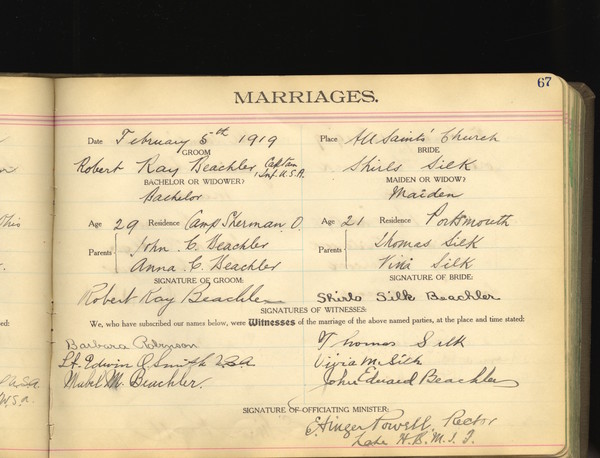 67
MARRIAGES.
Date February 5th 1919 Place All Saints' Church
GROOM BRIDE
Robert Ray Beachler, Captain Inf. U.S.A. Shirls Silk
BACHELOR OR WIDOWER? MAIDEN OR WIDOW?
Bachelor Maiden
Age 29 Residence Camp Sherman O. Age 21 Residence Portsmouth
Parents John C. Beachler Parents Thomas Silk
Anna C. Beachler Silk
SIGNATURE OF GROOM: SIGNATURE OF BRIDE:
Robert Ray Beachler Shirls Silk Beachler
SIGNATURES OF WITNESSES:
ed: We, who have subscribed our names below, were Witnesses of the marriage of the above named parties, at the place and time stated:
Barbara Robinson Thomas Silk
Lt. Edwin Smith U.S.A. M. Silk
Mabel M. Beachler. John Edward Beachler
SIGNATURE OF OFFICIATING MINISTER:
Powell, Rector
Late